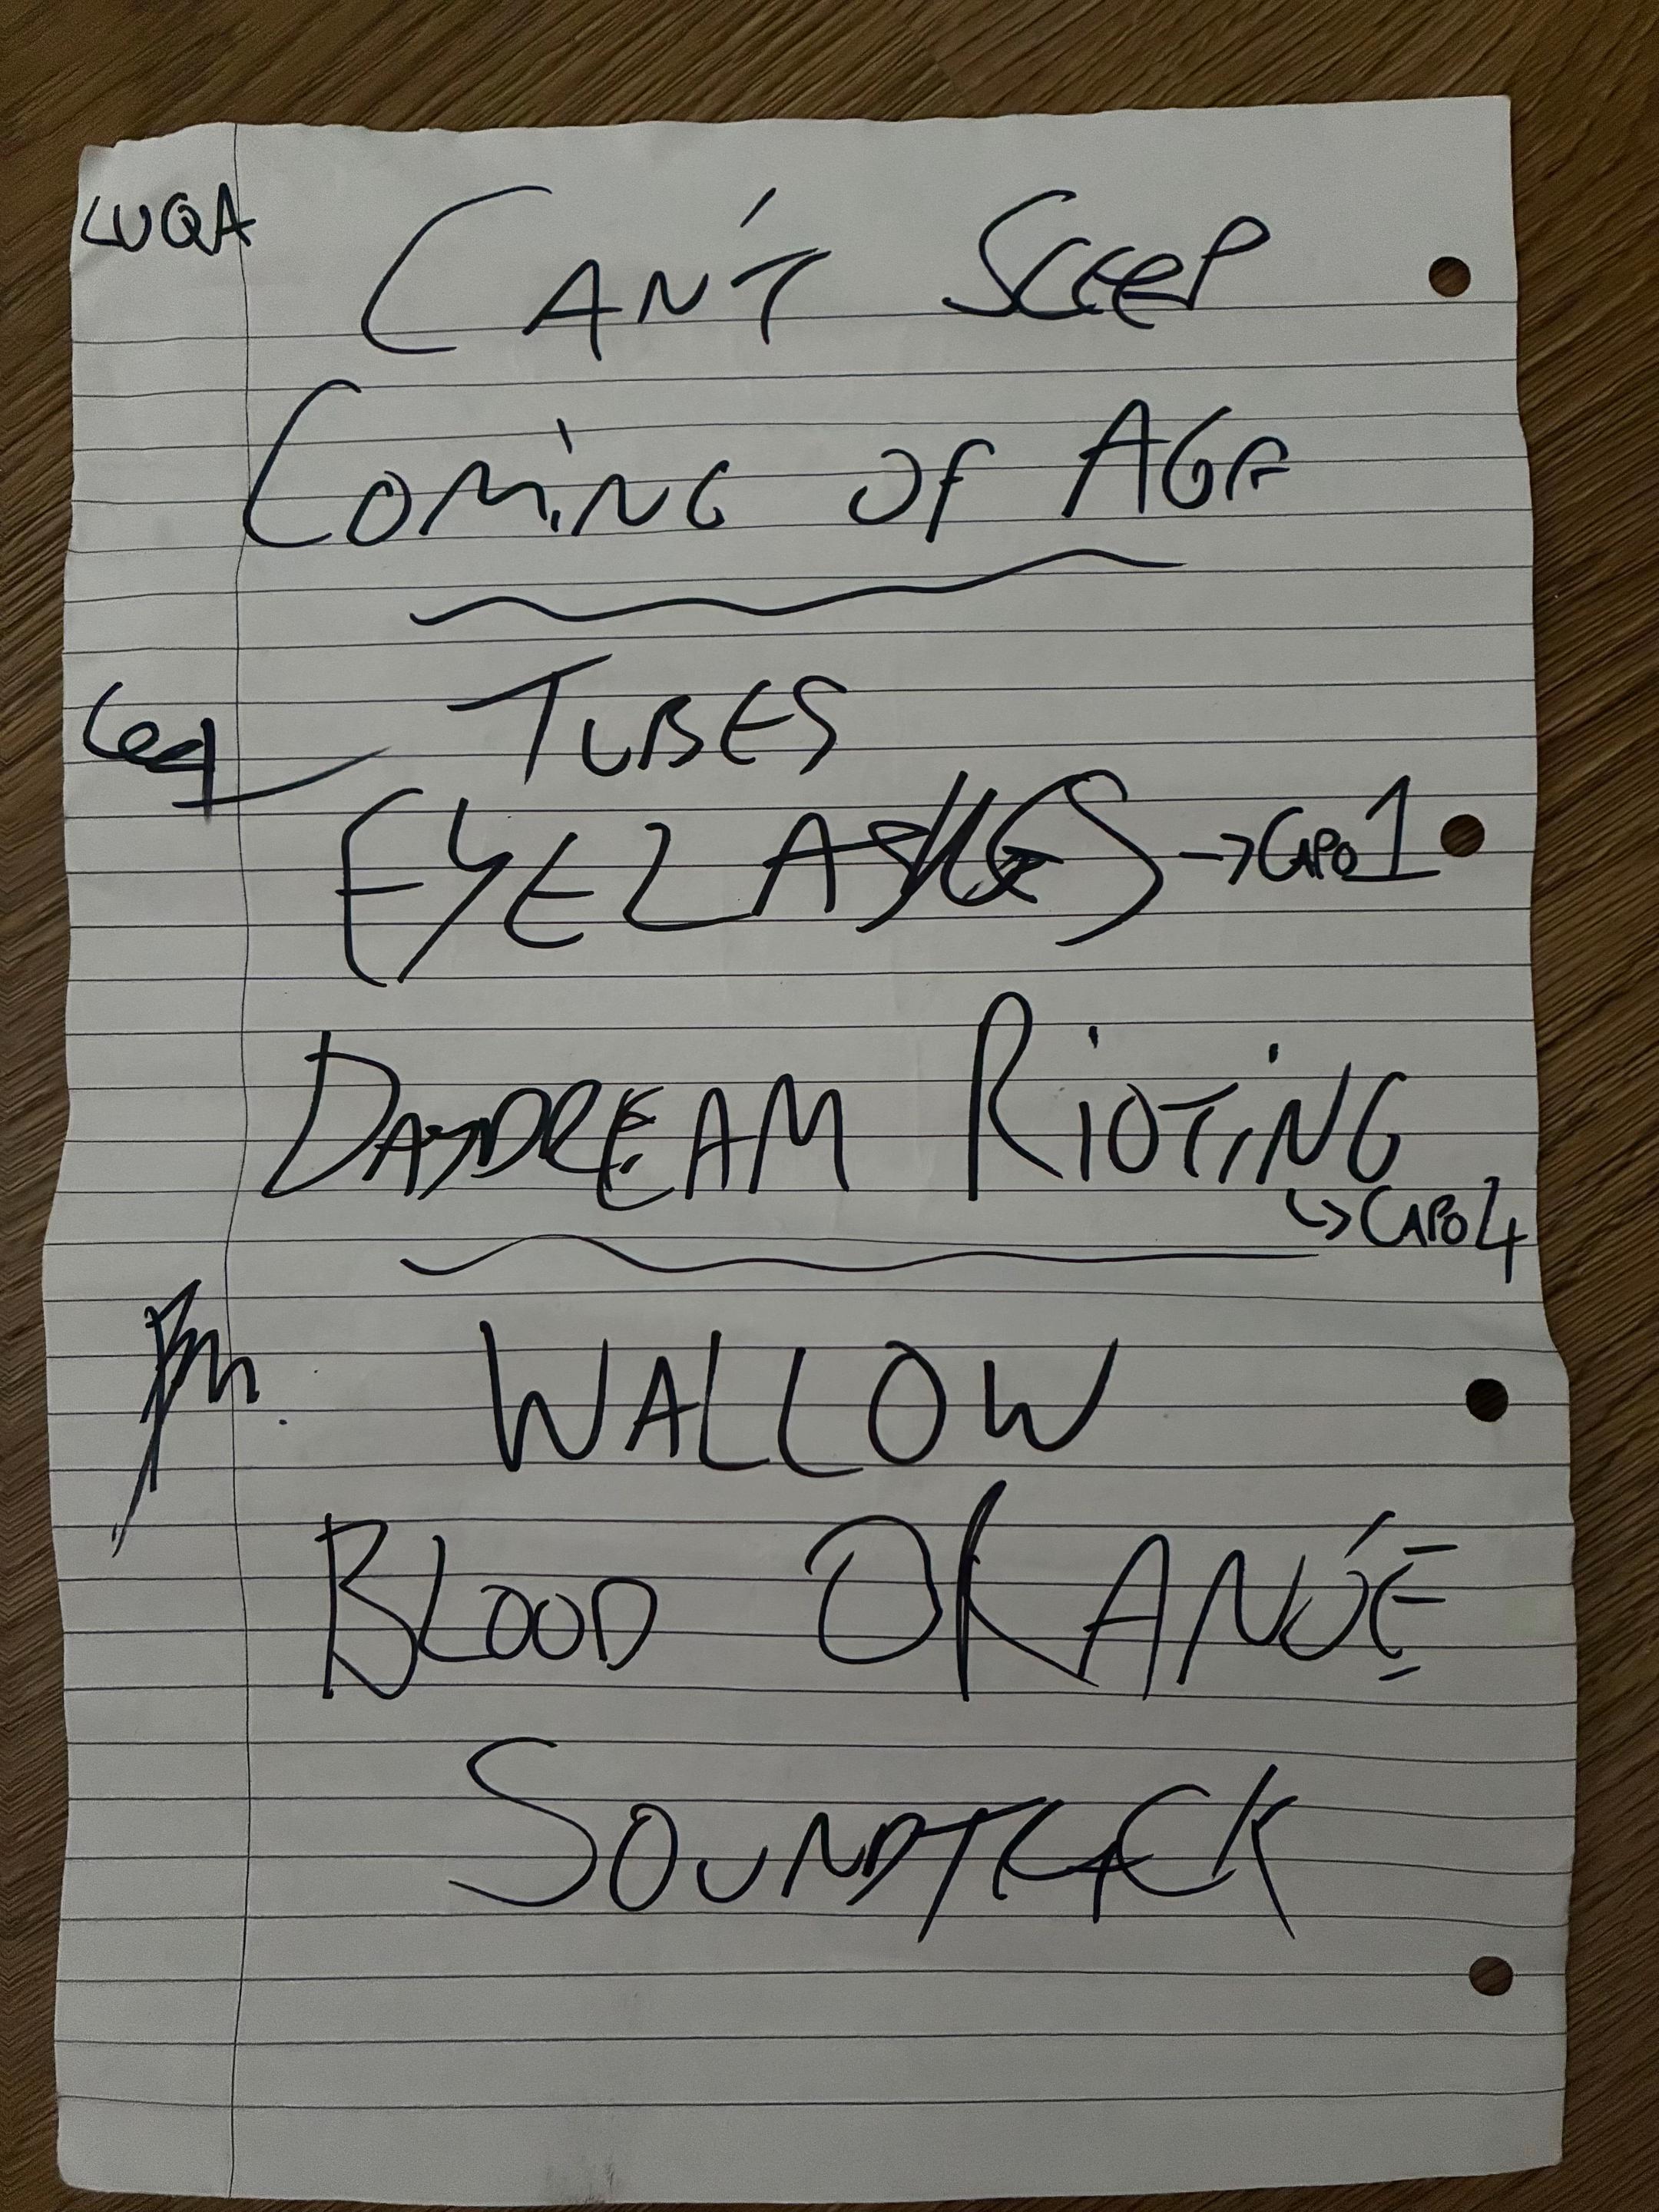 LUQA
CAN'T SLEEP
COMING OF AGE
TUBES
EYELASHES → CAPO 1
DAYDREAM RIOTING
↳ CAPO 4
WALLOW
BLOOD ORANGE
SOUNDTRACK